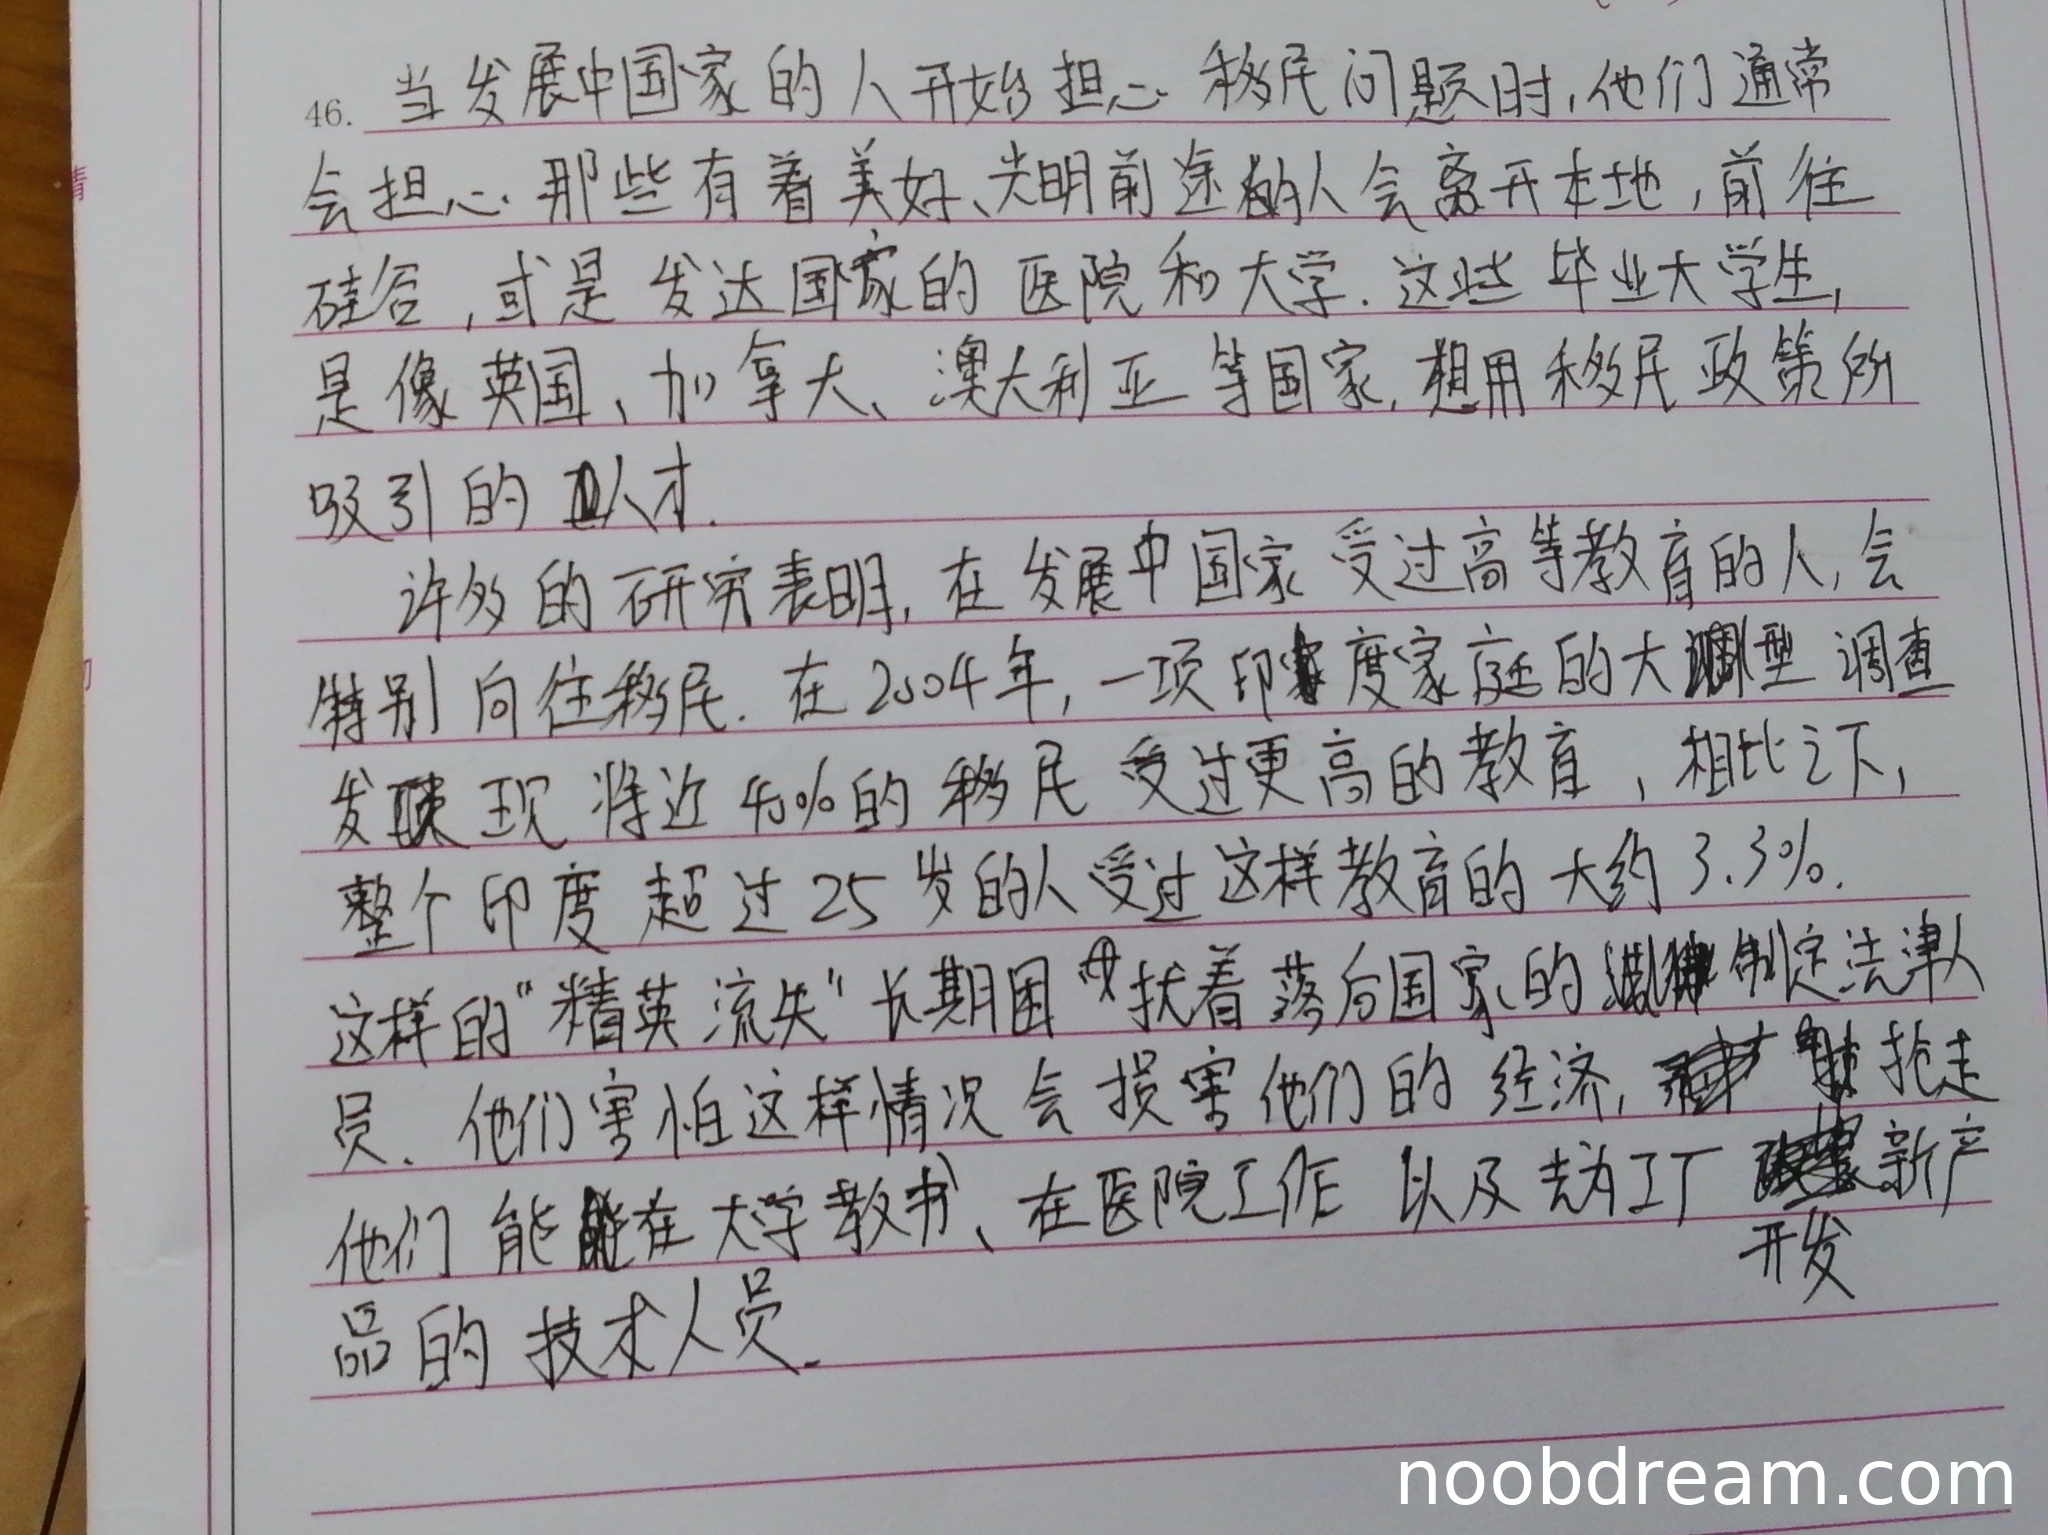 46. 当发展中国家的人开始担心移民问题时,他们通常
会担心那些有着美好、光明前途的人会离开本地,前往
硅谷,或是发达国家的医院和大学.这些毕业大学生,
是像英国、加拿大、澳大利亚等国家,想用移民政策所
吸引的人才.
许多的研究表明,在发展中国家受过高等教育的人,会
特别向往移民.在2004年,一项印度家庭的大型调查
发现将近40%的移民受过更高的教育,相比之下,
整个印度超过25岁的人受过这样教育的大约3.3%.
这样的"精英流失"长期困扰着落后国家的制定法律人
员.他们害怕这样情况会损害他们的经济,抢走
他们能在大学教书、在医院工作以及去为工厂新产
开发
品的技术人员.
noobdream.com